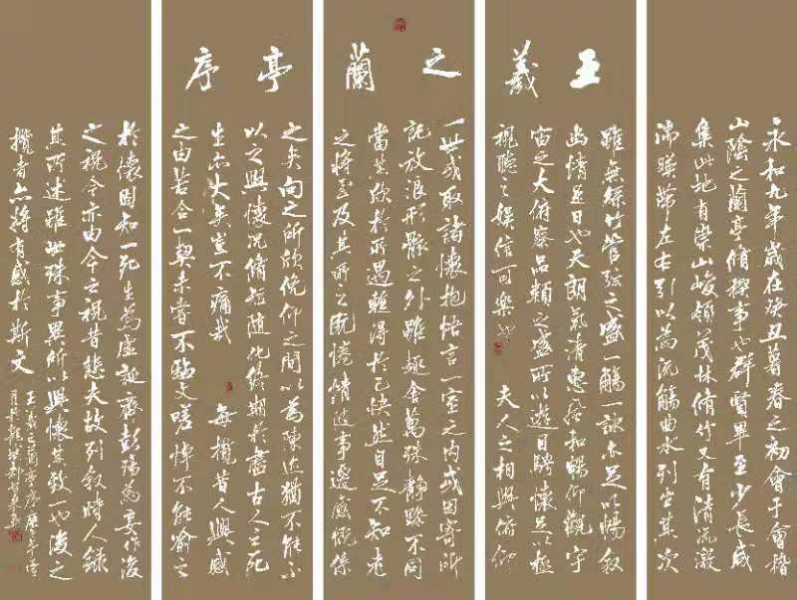 王羲之蘭亭序
永和九年歲在癸丑暮春之初會于會稽
山陰之蘭亭脩稧事也群賢畢至少長咸
集此地有崇山峻領茂林脩竹又有清流激
湍暎帶左右引以為流觴曲水列坐其次
雖無絲竹管弦之盛一觴一詠亦足以暢敘
幽情是日也天朗氣清惠風和暢仰觀宇
宙之大俯察品類之盛所以遊目騁懷足以極
視聽之娛信可樂也 夫人之相與俯仰
一世或取諸懷抱悟言一室之內或因寄所
託放浪形骸之外雖趣舍萬殊靜躁不同
當其欣於所遇蹔得於己快然自足不知老
之將至及其所之既惓情隨事遷感慨係
之矣向之所欣俛仰之間以為陳迹猶不能不
以之興懷況脩短隨化終期於盡古人云死
生亦大矣豈不痛哉 每攬昔人興感
之由若合一契未嘗不臨文嗟悼不能喻之
於懷固知一死生為虛誕齊彭殤為妄作後
之視今亦由今之視昔悲夫故列敘時人錄
其所述雖世殊事異所以興懷其致一也後之
攬者亦將有感於斯文